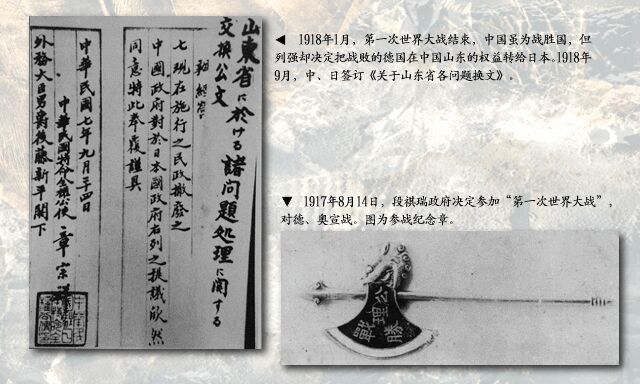 山東省に於ける諸問題処理に関する
交換公文
七現在施行之民政撤廢之
中國政府對於日本國政府右列之提議欣然
同意特此奉覆謹具
中華民國七年九月二十四日
中華民國特命全權公使 章宗祥
外務大臣男爵後藤新平閣下
◀ 1918年1月，第一次世界大战结束，中国虽为战胜国，但
列强却决定把战败的德国在中国山东的权益转给日本。1918年
9月，中、日签订《关于山东省各问题换文》。
▼ 1917年8月14日，段祺瑞政府决定参加“第一次世界大战”，
对德、奥宣战。图为参战纪念章。
公理
戰勝